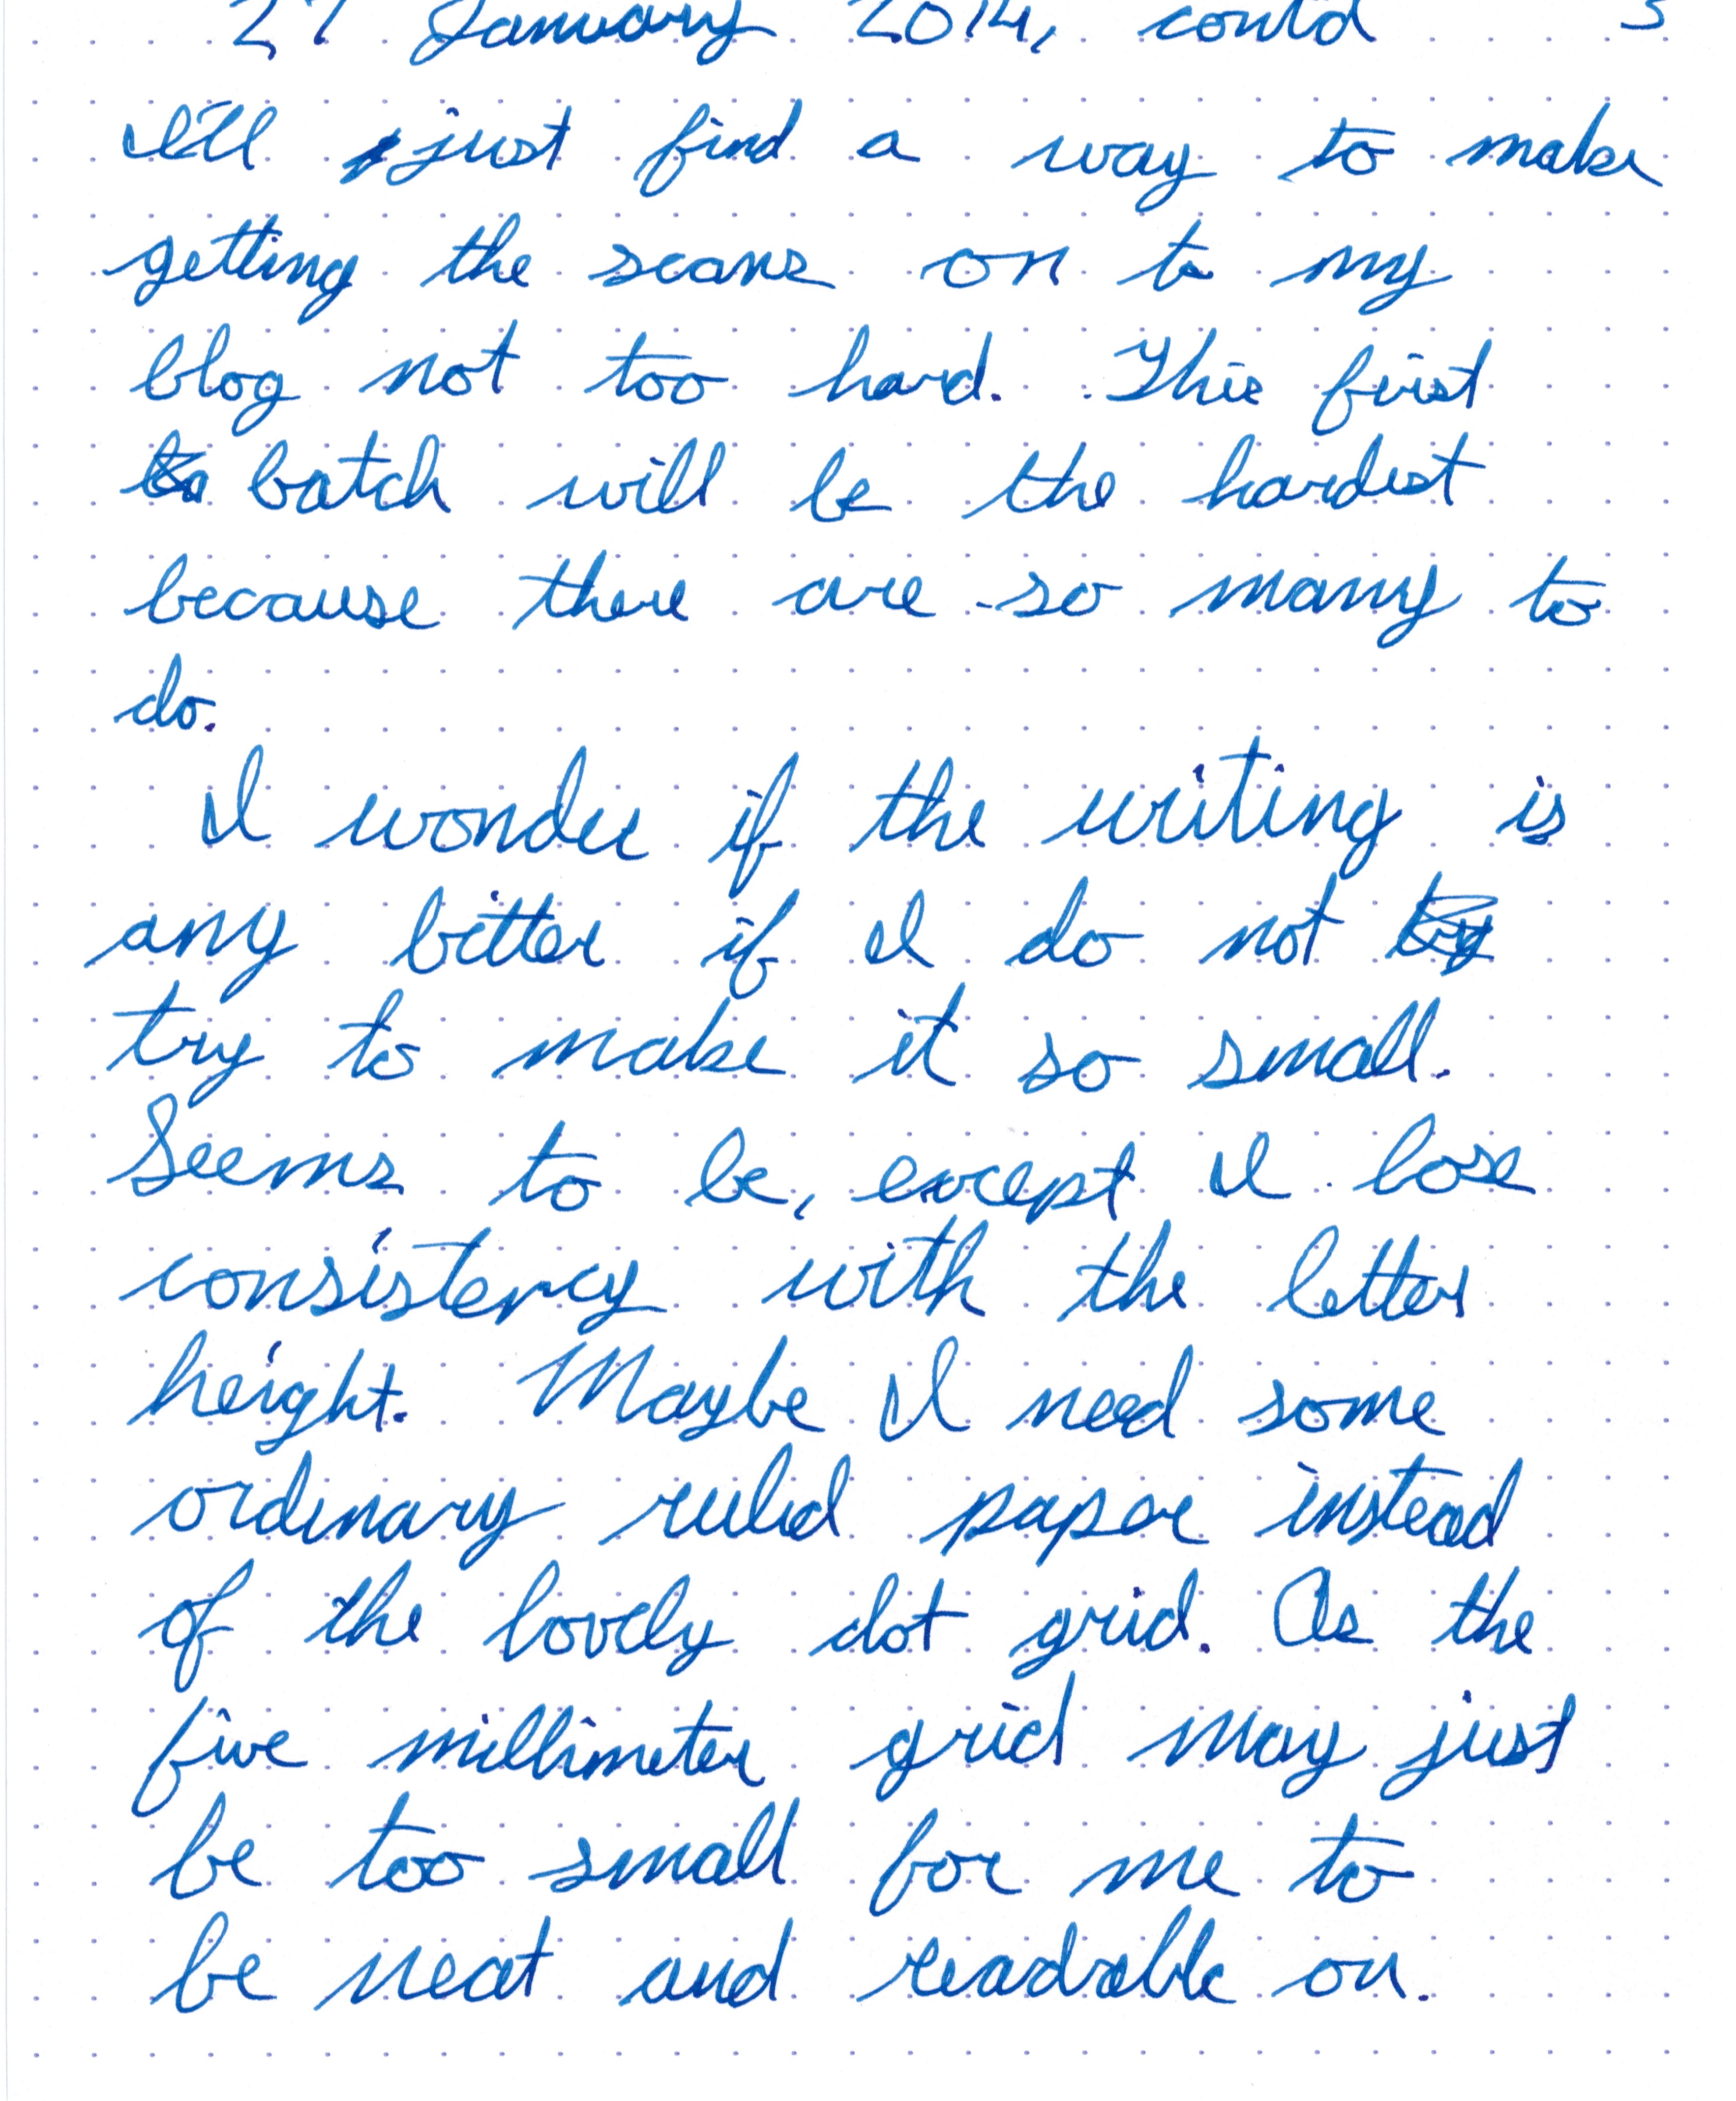 27 January 2014, cont'd 3
I'll just find a way to make
getting the scans on to my
blog not too hard. This first
batch will be the hardest
because there are so many to
do.
I wonder if the writing is
any bitter if I do not
try to make it so small.
Seems to be, except I lose
consistency with the letter
height. Maybe I need some
ordinary ruled paper instead
of the lovely dot grid. As the
five millimeter grid may just
be too small for me to
be neat and readable on.